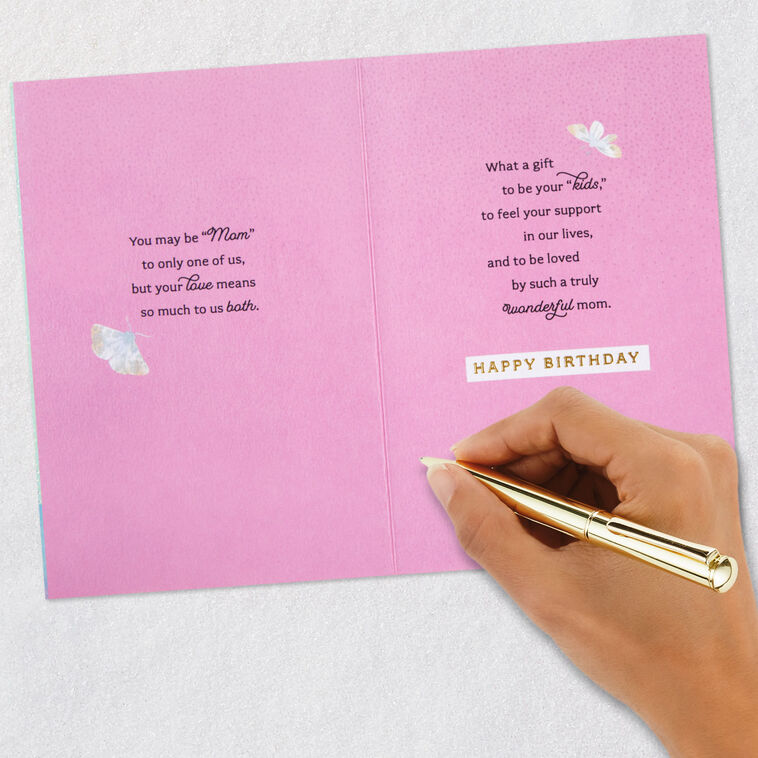 You may be “Mom”
to only one of us,
but your love means
so much to us both.
What a gift
to be your “kids,”
to feel your support
in our lives,
and to be loved
by such a truly
wonderful mom.
HAPPY BIRTHDAY